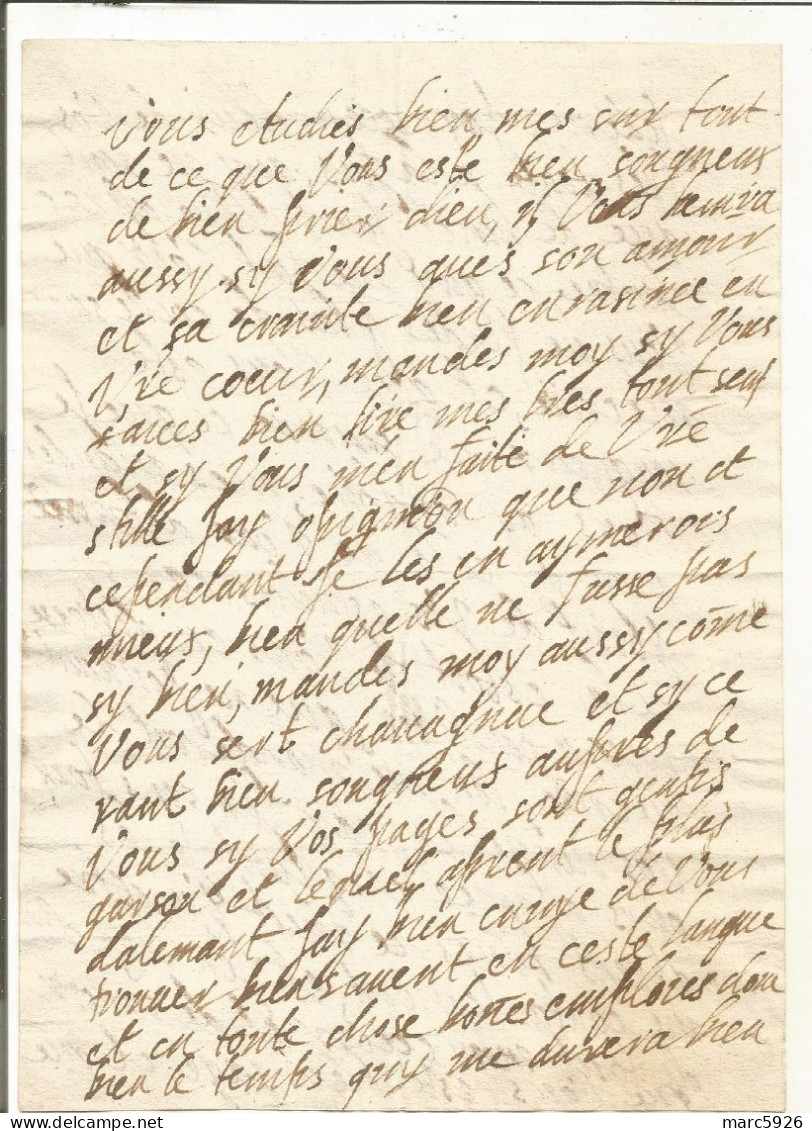 vous etudies bien mes sur tout
de ce que vous este bien songneux
de bien prier dieu, il vous benira
aussy sy vous aves son amour
et sa crainte bien enrasinee en
vre coeur, mandes moy sy vous
saves bien lire mes lres tout seul
et sy vous men faite de vre
stille jay opignion que non et
cependant je les en aymerois
mieux, bien quelle ne fusse pas
sy bien, mandes moy aussy come
vous sert chavagnac et sy ce
rant bien songneux aupres de
vous sy vos pages sont gentis
garson et lequel aprent le plus
dalemant jay bien envye de vous
trouver bien savent en ceste langue
et en toute chose bonnes emploies don
bien le temps quy me durera bien
marc5926